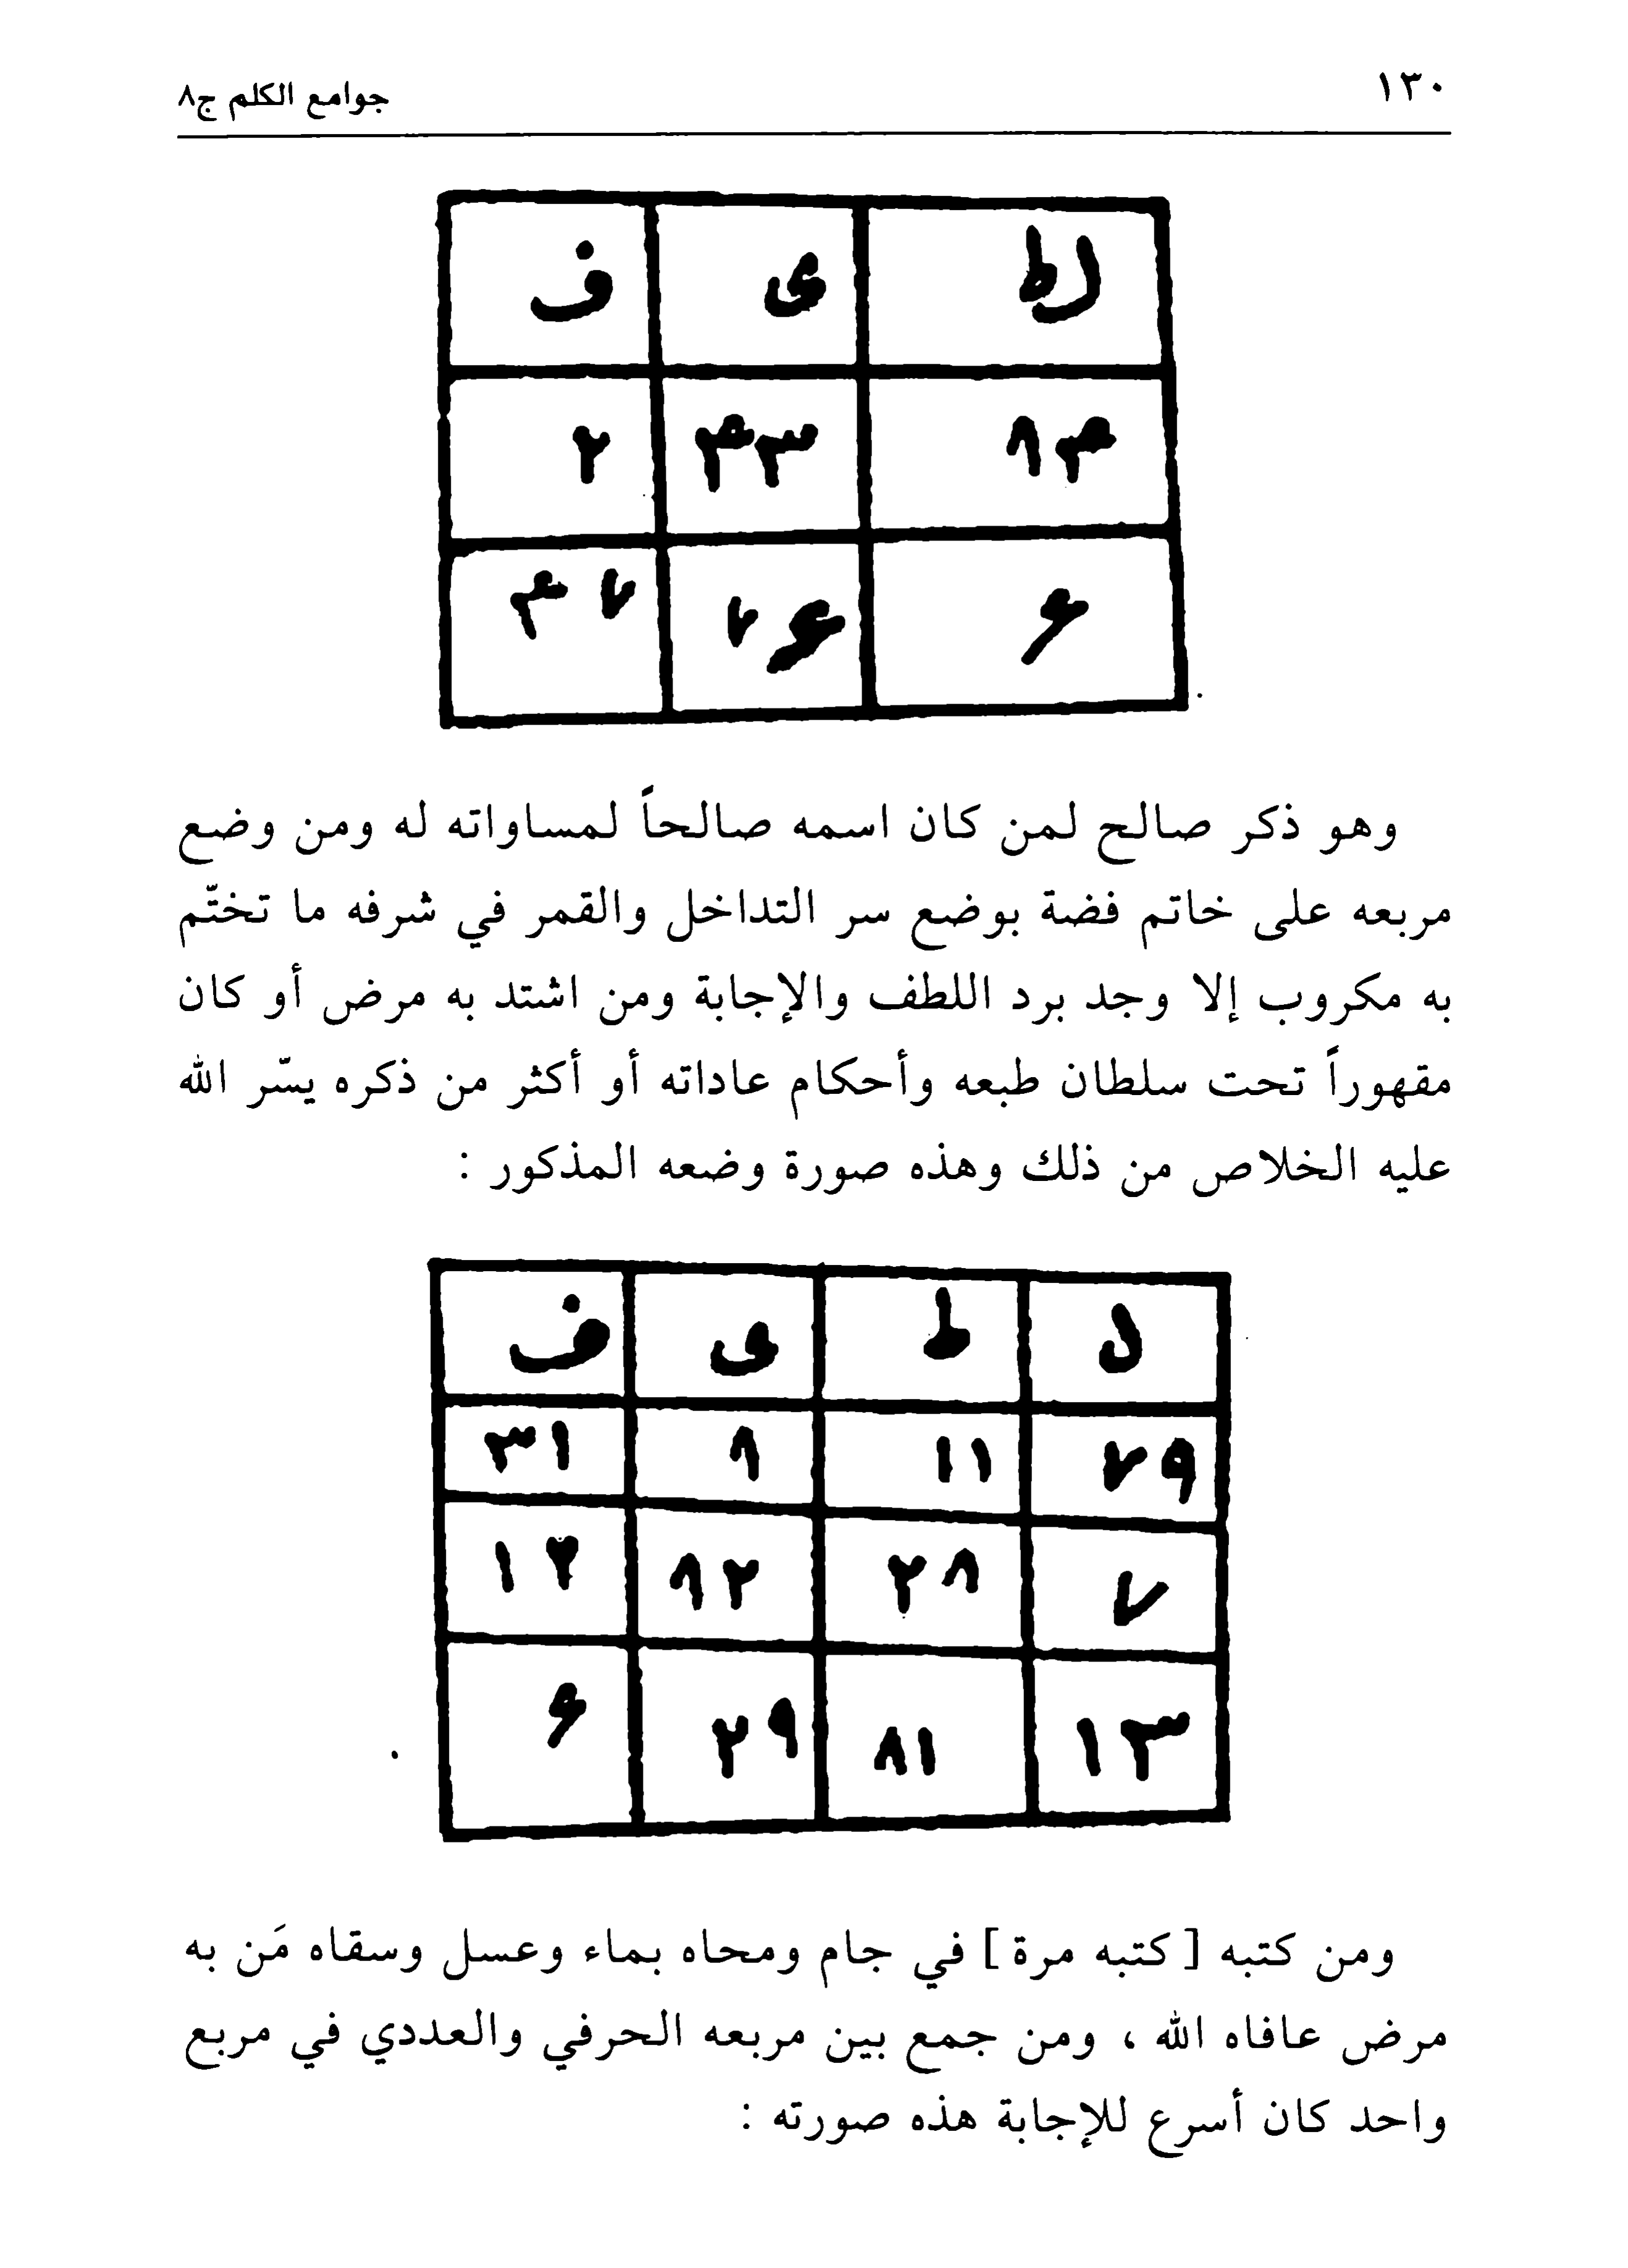 ١٣٠ جوامع الكلم ج٨
لط ى ف
٨۴ ۴٣ ٢
۶ ٧۶ ۴٧
وهو ذكر صالح لمن كان اسمه صالحاً لمساواته له ومن وضع
مربعه على خاتم فضة بوضع سر التداخل والقمر في شرفه ما تختّم
به مكروب إلا وجد برد اللطف والإجابة ومن اشتد به مرض أو كان
مقهوراً تحت سلطان طبعه وأحكام عاداته أو أكثر من ذكره يسّر الله
عليه الخلاص من ذلك وهذه صورة وضعه المذكور :
ل ط ى ف
٧٩ ١١ ٨ ٣١
٧ ٢٨ ٨٢ ١٢
١٣ ٨١ ٢٩ ۶
ومن كتبه [ كتبه مرة ] في جام ومحاه بماء وعسل وسقاه مَن به
مرض عافاه الله ، ومن جمع بين مربعه الحرفي والعددي في مربع
واحد كان أسرع للإجابة هذه صورته :